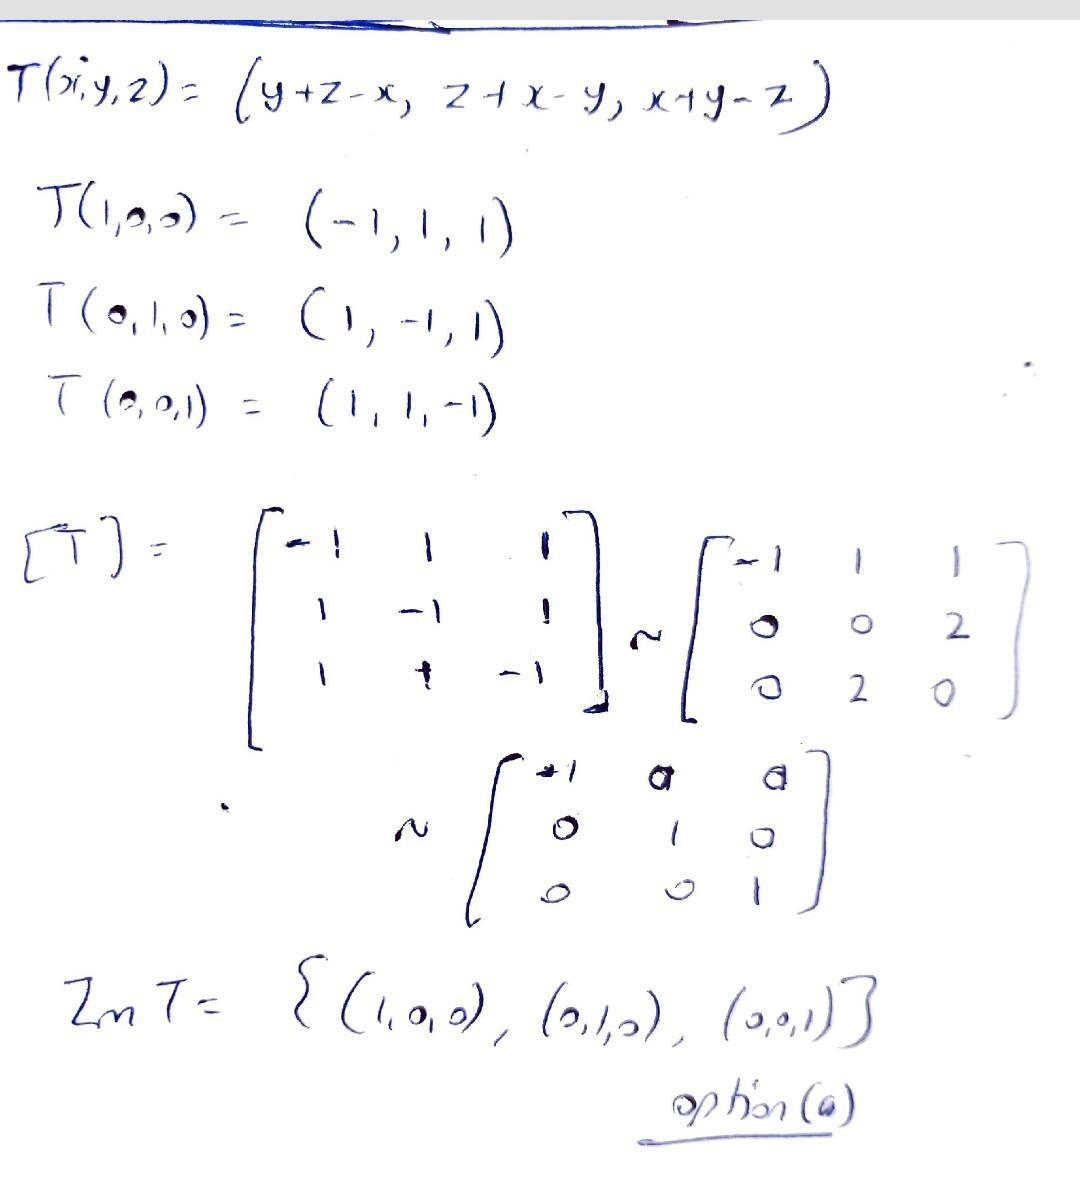 T(x,y,z) = (y+z-x, z+x-y, x+y-z)
T(1,0,0) = (-1, 1, 1)
T(0,1,0) = (1, -1, 1)
T(0,0,1) = (1, 1, -1)
[T] = [-1 1 1
1 -1 1
1 1 -1] ~ [-1 1 1
0 0 2
0 2 0]
~ [+1 0 0
0 1 0
0 0 1]
Im T = {(1,0,0), (0,1,0), (0,0,1)}
option (a)